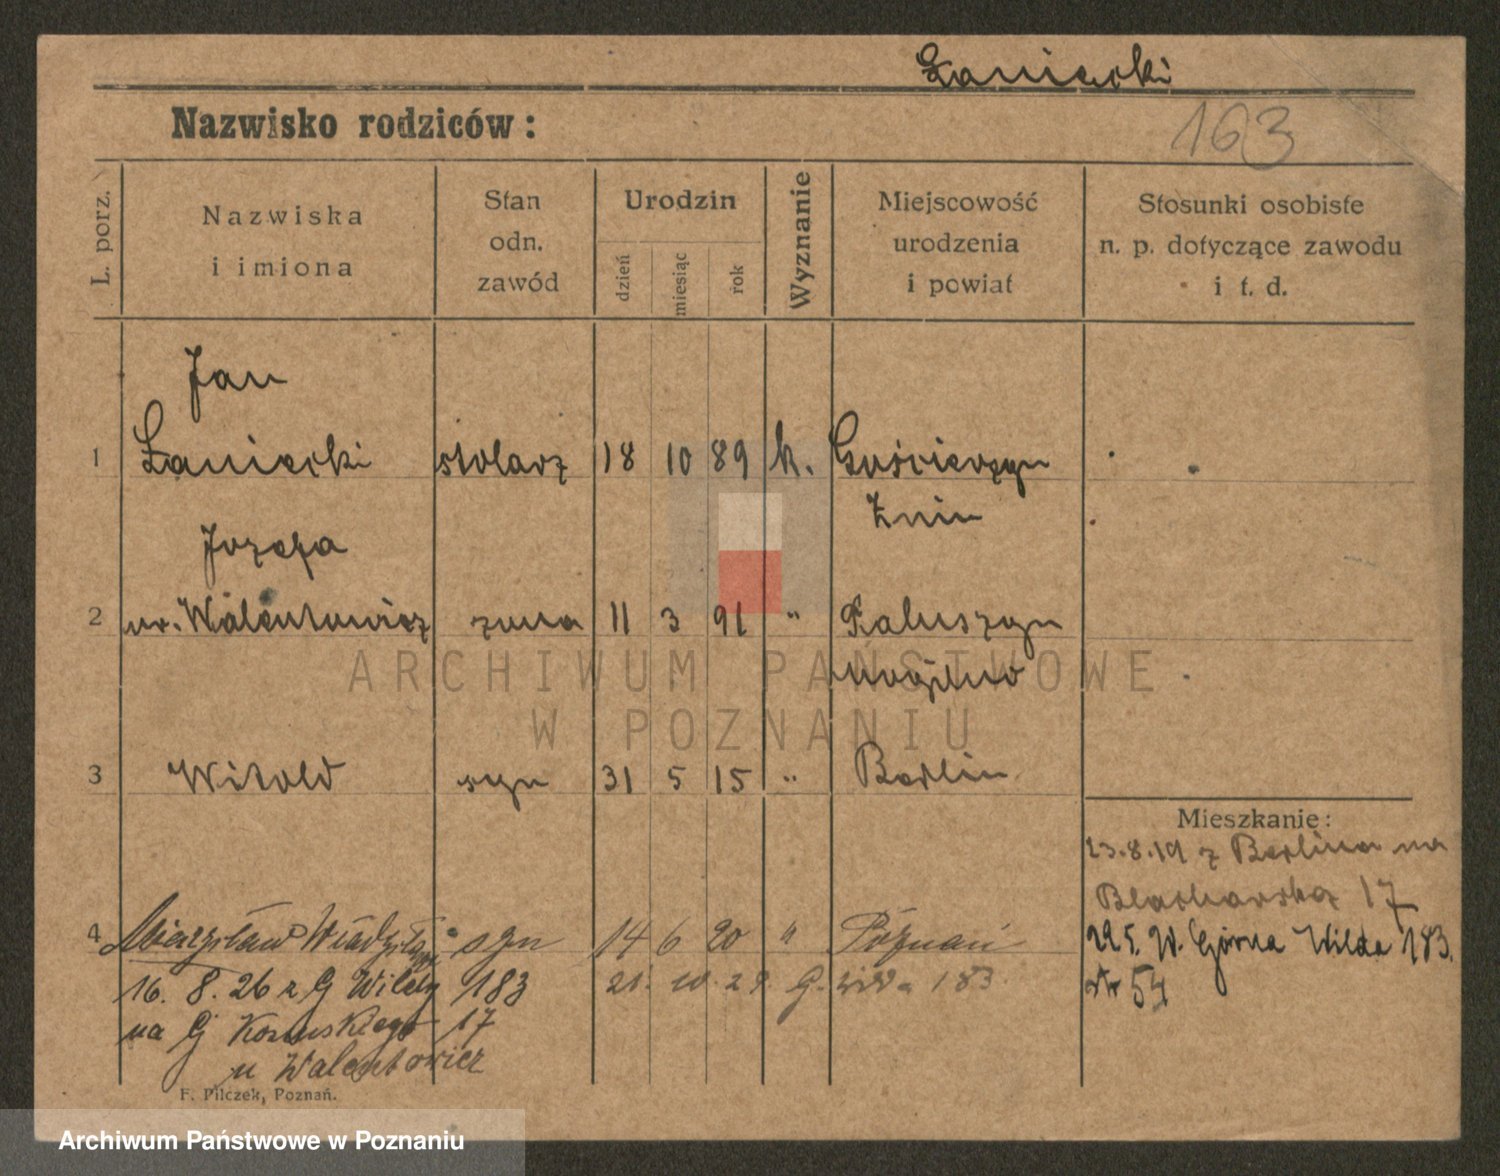 Łaniecki
Nazwisko rodziców:
163
L. porz.
Nazwiska
i imiona
Stan
odn.
zawód
Urodzin
dzień
miesiąc
rok
Wyznanie
Miejscowość
urodzenia
i powiat
Stosunki osobiste
n. p. dotyczące zawodu
i t. d.
Jan
1 Łaniecki stolarz 18 10 89 k. Gościerzyn
Żnin
Józefa
2 ur. Walentowicz żona 11 3 91 " Paluszyn
Mogilno
ARCHIWUM PAŃSTWOWE
W POZNANIU
3 Witold syn 31 5 15 " Berlin
Mieszkanie:
23.8.19 z Berlina na
Blacharska 17
4 Mieczysław Władysław syn 14 6 20 " Poznań
29.5. W. Górna Wilda 183.
54
16. 8. 26 z G Wildy 183
21. 10. 29. G. Wilda 183.
na G Kosińskiego 17
u Walentowicz
F. Pilczek, Poznań.
Archiwum Państwowe w Poznaniu